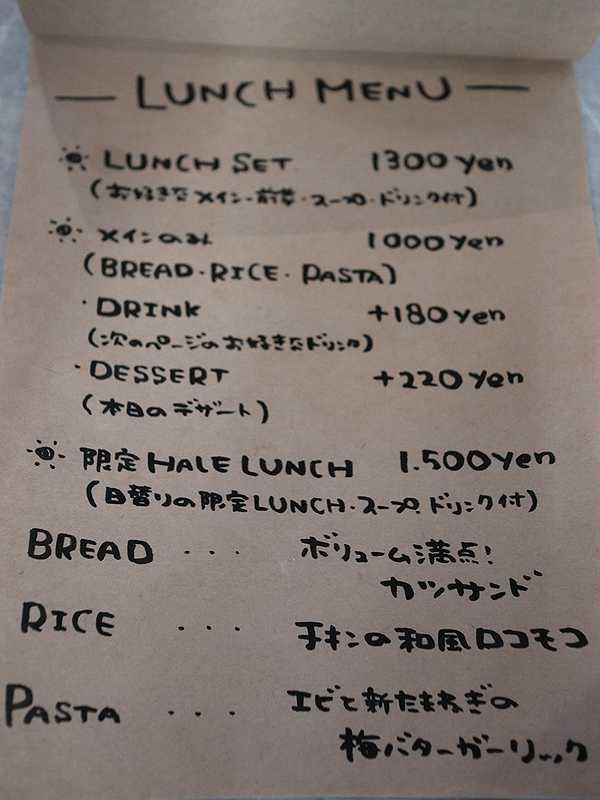 LUNCH MENU
LUNCH SET 1300 yen
(お好きなメイン・前菜・スープ・ドリンク付)
メインのみ 1000 yen
(BREAD・RICE・PASTA)
・DRINK +180 yen
(次のページのお好きなドリンク)
・DESSERT +220 yen
(本日のデザート)
限定 HALE LUNCH 1.500 yen
(日替りの限定LUNCH・スープ、ドリンク付)
BREAD ... ボリューム満点!
カツサンド
RICE ... チキンの和風ロコモコ
PASTA ... エビと新たまねぎの
梅バターガーリック